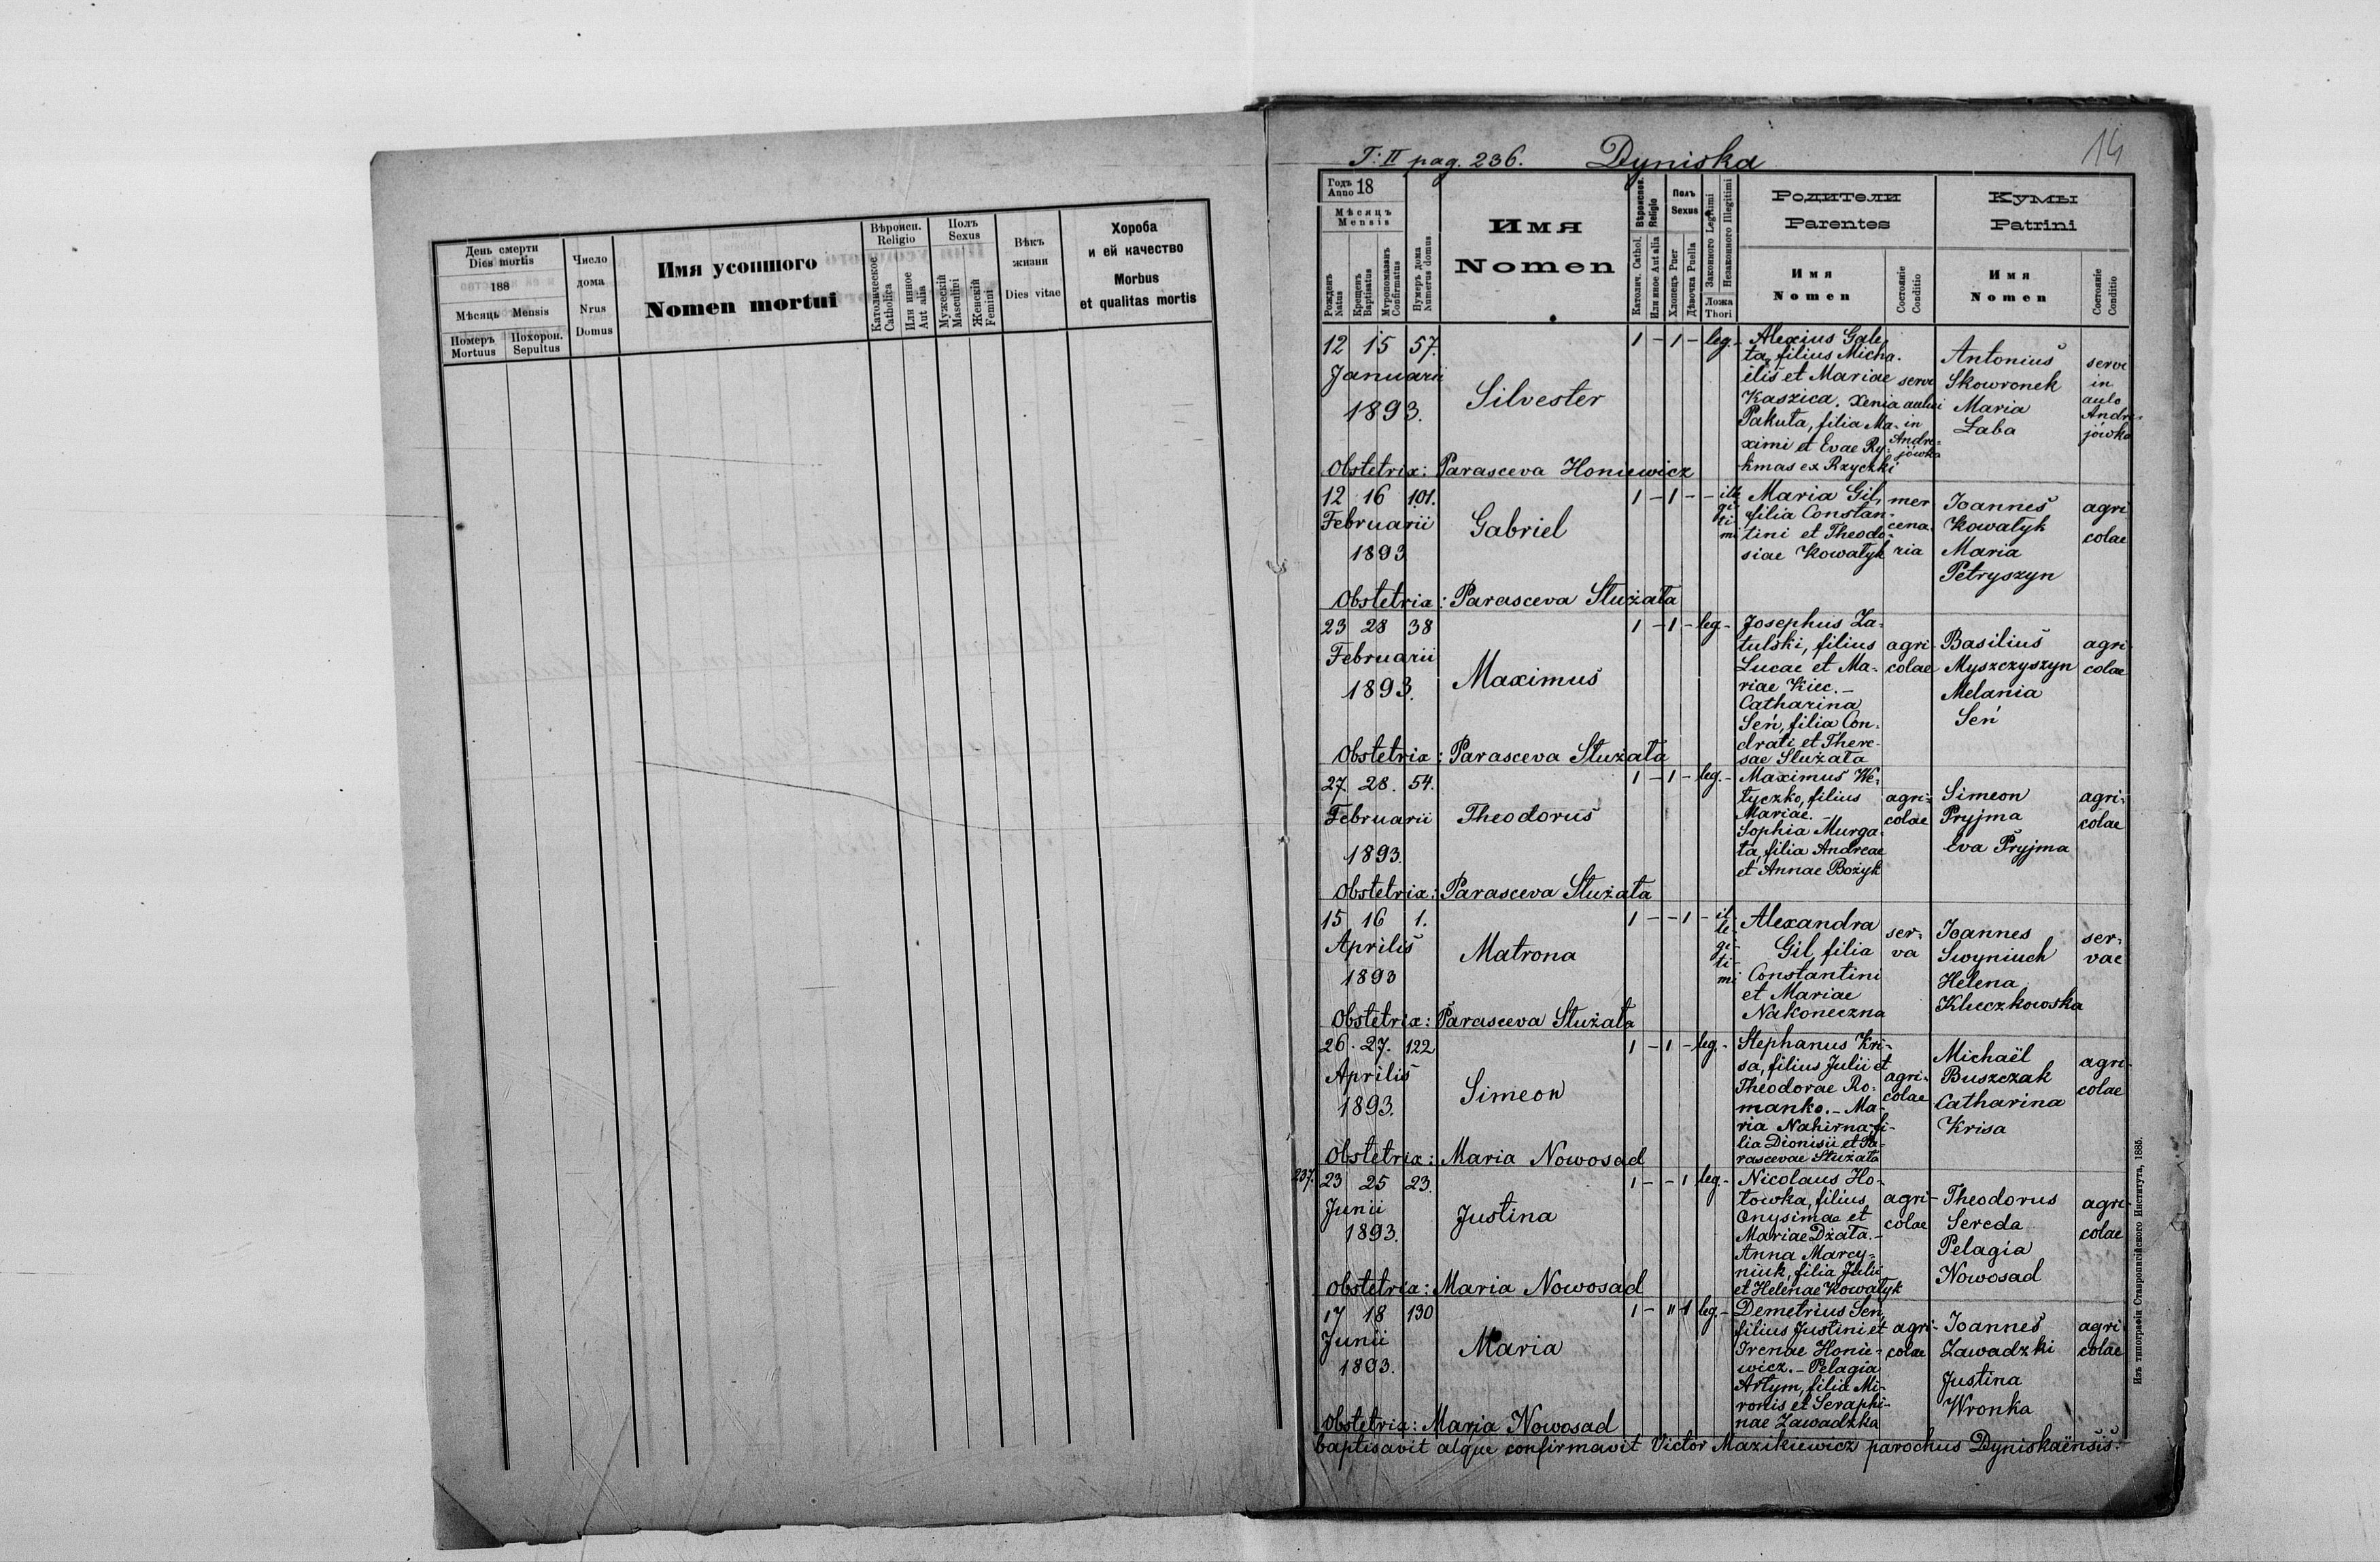 День смерти
Dies mortis
188
Мѣсяць Mensis
Померъ
Mortuus
Похорон.
Sepultus
Число
дома
Nrus
Domus
Имя усопшого
Nomen mortui
Вѣроисп.
Religio
Католическое
Catholica
Или инное
Aut alia
Полъ
Sexus
Мужескій
Masculini
Женскій
Feminini
Вѣкъ
жизни
Dies vitae
Хороба
и ей качество
Morbus
et qualitas mortis
T: II pag. 236. Dyniska
14
Годъ
Anno 18
Мѣсяцъ
Mensis
Рожденъ
Natus
Крещенъ
Baptisatus
Мѵропомазанъ
Confirmatus
Нумеръ дома
Numerus domus
Имя
Nomen
Вѣроиспов.
Religio
Католич. Cathol.
Или иное Aut alia
Полъ
Sexus
Хлопецъ Puer
Дѣвочка Puella
Законного Legitimi
Незаконного Illegitimi
Ложа
Thori
Родители
Parentes
Имя
Nomen
Состояніе
Conditio
Кумы
Patrini
Имя
Nomen
Состояніе
Conditio
12 15 57.
Januarii
1893.
Silvester
1 - 1 - leg. -
Alexius Gale
ta, filius Micha-
elis et Mariae
Kaszica. Xenia
Pakuta, filia Ma-
ximi et Evae Ry-
kmas ex Rzyczki
servi
aulici
in
Andre-
jówka
Antonius
Skowronek
Maria
Łaba
servi
in
aulo
Andre-
jówka
Obstetrix: Parasceva Honiewicz
12 16 101.
Februarii
1893
Gabriel
1 - 1 - - ille
gi-
ti-
mi
Maria Gil,
filia Constan-
tini et Theodo-
siae Kowatyk
mer
cena-
ria
Ioannes
Kowatyk
Maria
Petryszyn
agri
colae
Obstetrix: Parasceva Służała
23 28 38
Februarii
1893.
Maximus
1 - 1 - leg. -
Josephus Za-
tulski, filius
Lucae et Ma-
riae Kiec. -
Catharina
Seń, filia Con-
drati et There-
sae Służała
agri-
colae
Basilius
Myszczyszyn
Melania
Seń
agri
colae
Obstetrix: Parasceva Służała
27. 28. 54.
Februarii
1893.
Theodorus
1 - 1 - leg. -
Maximus We-
tyczko, filius
Mariae. -
Sophia Murga-
ta, filia Andreae
et Annae Bożyk
agri-
colae
Simeon
Pryjma
Eva Pryjma
agri-
colae
Obstetrix: Parasceva Służała
15 16 1.
Aprilis
1893
Matrona
1 - - 1 - il-
le-
gi-
ti-
mi
Alexandra
Gil, filia
Constantini
et Mariae
Nakoneczna
ser-
va
Ioannes
Swyniuch
Helena
Kluczkowska
ser-
vae
Obstetrix: Parasceva Służała
26. 27. 122
Aprilis
1893.
Simeon
1 - 1 - leg. -
Stephanus Kri-
sa, filius Julii et
Theodorae Ro-
manko. - Ma-
ria Nahirna fi-
lia Dionisii et Pa-
rascevae Służała
agri-
colae
Michaël
Buszczak
Catharina
Krisa
agri-
colae
Obstetrix: Maria Nowosad
237. 23 25 23.
Junii
1893.
Justina
1 - - 1 leg. -
Nicolaus Ho-
towka, filius
Onysimae et
Mariae Dżała. -
Anna Marcy-
niuk, filia Julii
et Helenae Kowatyk
agri-
colae
Theodorus
Sereda
Pelagia
Nowosad
agri-
colae
Obstetrix: Maria Nowosad
17 18 130
Junii
1893.
Maria
1 - " 1 leg. -
Demetrius Seń,
filius Justini et
Irenae Honie-
wicz. - Pelagia
Artym, filia Mi-
ronis et Seraphi-
nae Zawadzka
agri-
colae
Ioannes
Zawadzki
Justina
Wronka
agri
colae
Obstetrix: Maria Nowosad
baptisavit atque confirmavit Victor Mazikiewicz parochus Dyniskaënsis.
Изъ типографіи Ставропигійского Института, 1885.